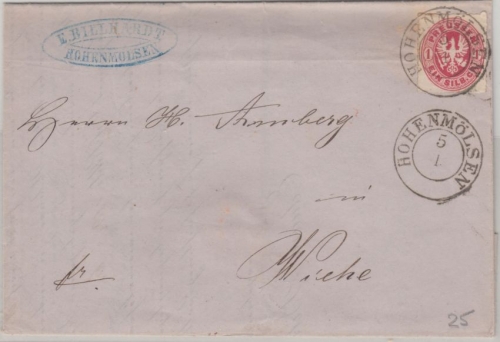 E. BILLHARDT
HOHENMÖLSEN
HOHENMÖLSEN
1
1
SILB. GR.
HOHENMÖLSEN
5
1
Herrn H. Arnberg
in
Wiehe
fr.
25